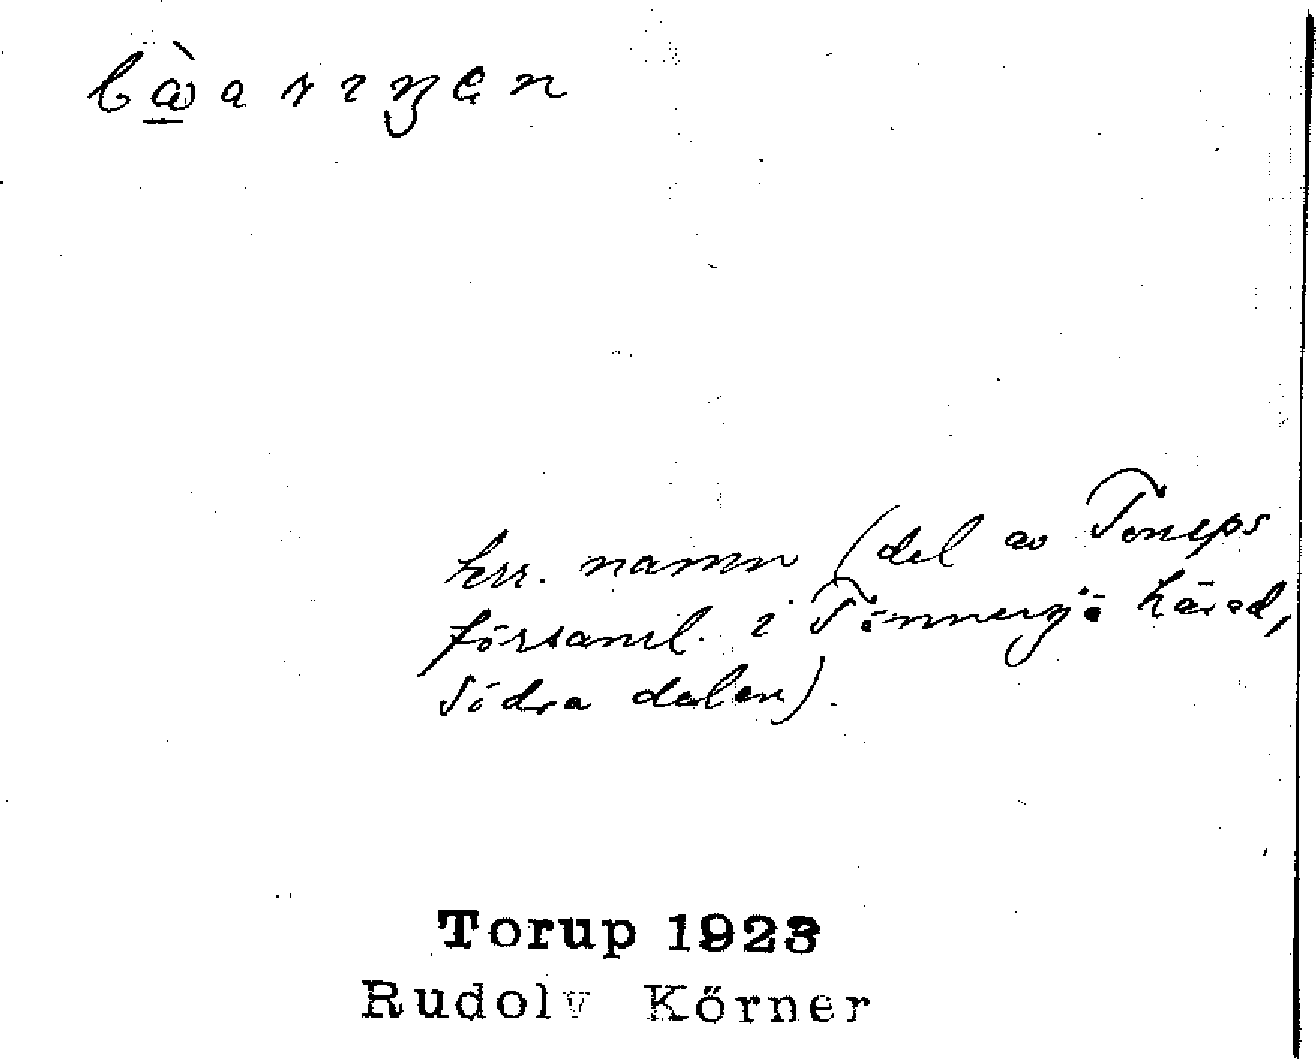 terr. namn (del av Torups
församl. i Tönnersjö härad,
Södra delen).
Torup 1923
Rudolv Körner